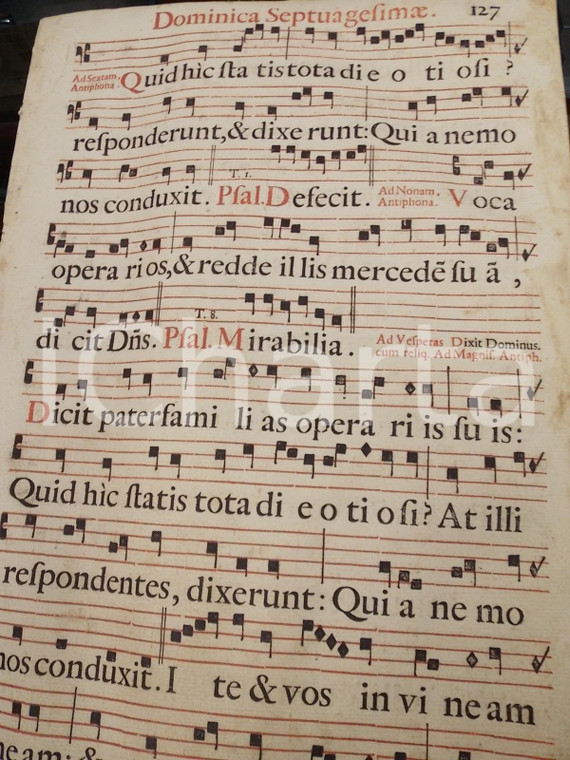 Dominica Septuagesimæ. 127
Ad Sextam, Antiphona. Quid hìc ſta tis tota di e o ti oſi ?
reſponderunt, & dixe runt: Qui a nemo
T. 1.
nos conduxit. Pſal. Defecit. Ad Nonam, Antiphona. Voca
opera ri os, & redde il lis mercedē ſu ā ,
T. 8.
di cit Dñs. Pſal. Mirabilia. Ad Veſperas Dixit Dominus. cum reliq. Ad Magnif. Antiph.
Dicit paterfami li as opera ri is ſu is:
Quid hìc ſtatis tota di e o ti o ſi? At illi
reſpondentes, dixerunt: Qui a ne mo
nos conduxit. I te & vos in vi neam
neam: &
iCharta